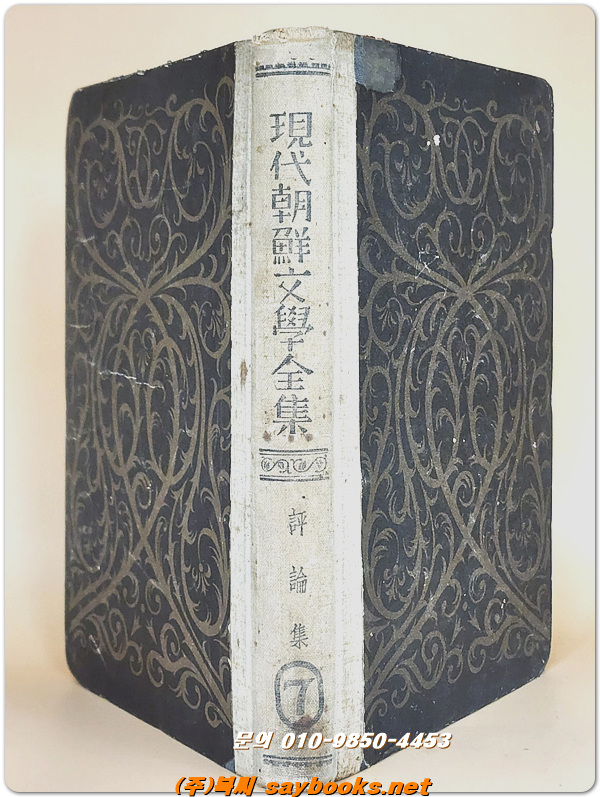 現代朝鮮文學全集
評論集
7
문의 010-9850-4453
(주)북씨 saybooks.net